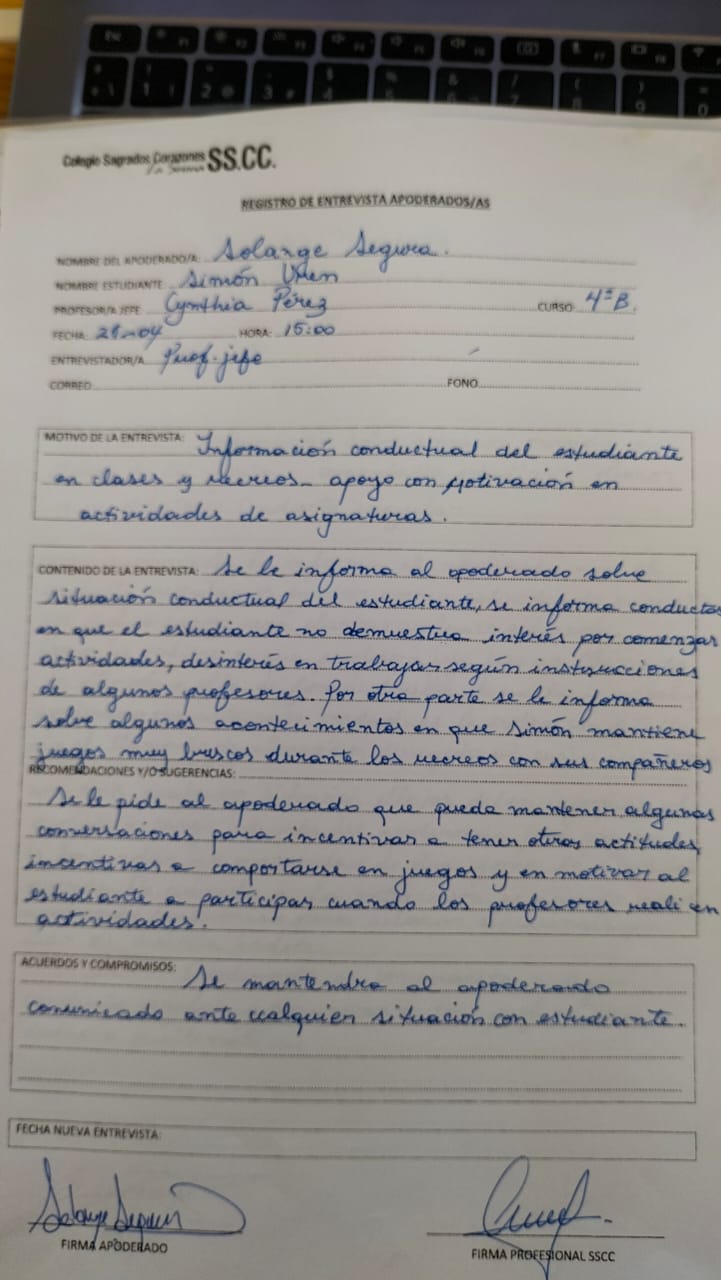 Esc F1 F2 F3 F4 F5 F6 F7 F8
Colegio Sagrados Corazones SS.CC.
La Serena
REGISTRO DE ENTREVISTA APODERADOS/AS
NOMBRE DEL APODERADO/A: Solange Segura.
NOMBRE ESTUDIANTE: Simón
PROFESOR/A JEFE Cynthia Pérez CURSO: 4°B.
FECHA: HORA: 15:00
ENTREVISTADOR/A Prof. jefe
CORREO FONO
MOTIVO DE LA ENTREVISTA: Información conductual del estudiante
en clases y recreos - apoyo con motivación en
actividades de asignaturas.
CONTENIDO DE LA ENTREVISTA: Se le informa al apoderado sobre
situación conductual del estudiante, se informa conductas
en que el estudiante no demuestra interés por comenzar
actividades, desinterés en trabajar según instrucciones
de algunos profesores. Por otra parte se le informa
sobre algunos acontecimientos en que Simón mantiene
juegos muy bruscos durante los recreos con sus compañeros
RECOMENDACIONES Y/O SUGERENCIAS:
Se le pide al apoderado que pueda mantener algunas
conversaciones para incentivar a tener otras actitudes,
incentivar a comportarse en juegos y en motivar al
estudiante a participar cuando los profesores realicen
actividades.
ACUERDOS Y COMPROMISOS:
Se mantendra al apoderado
comunicado ante cualquier situación con estudiante.
FECHA NUEVA ENTREVISTA:
Solange Segura
FIRMA APODERADO FIRMA PROFESIONAL SSCC